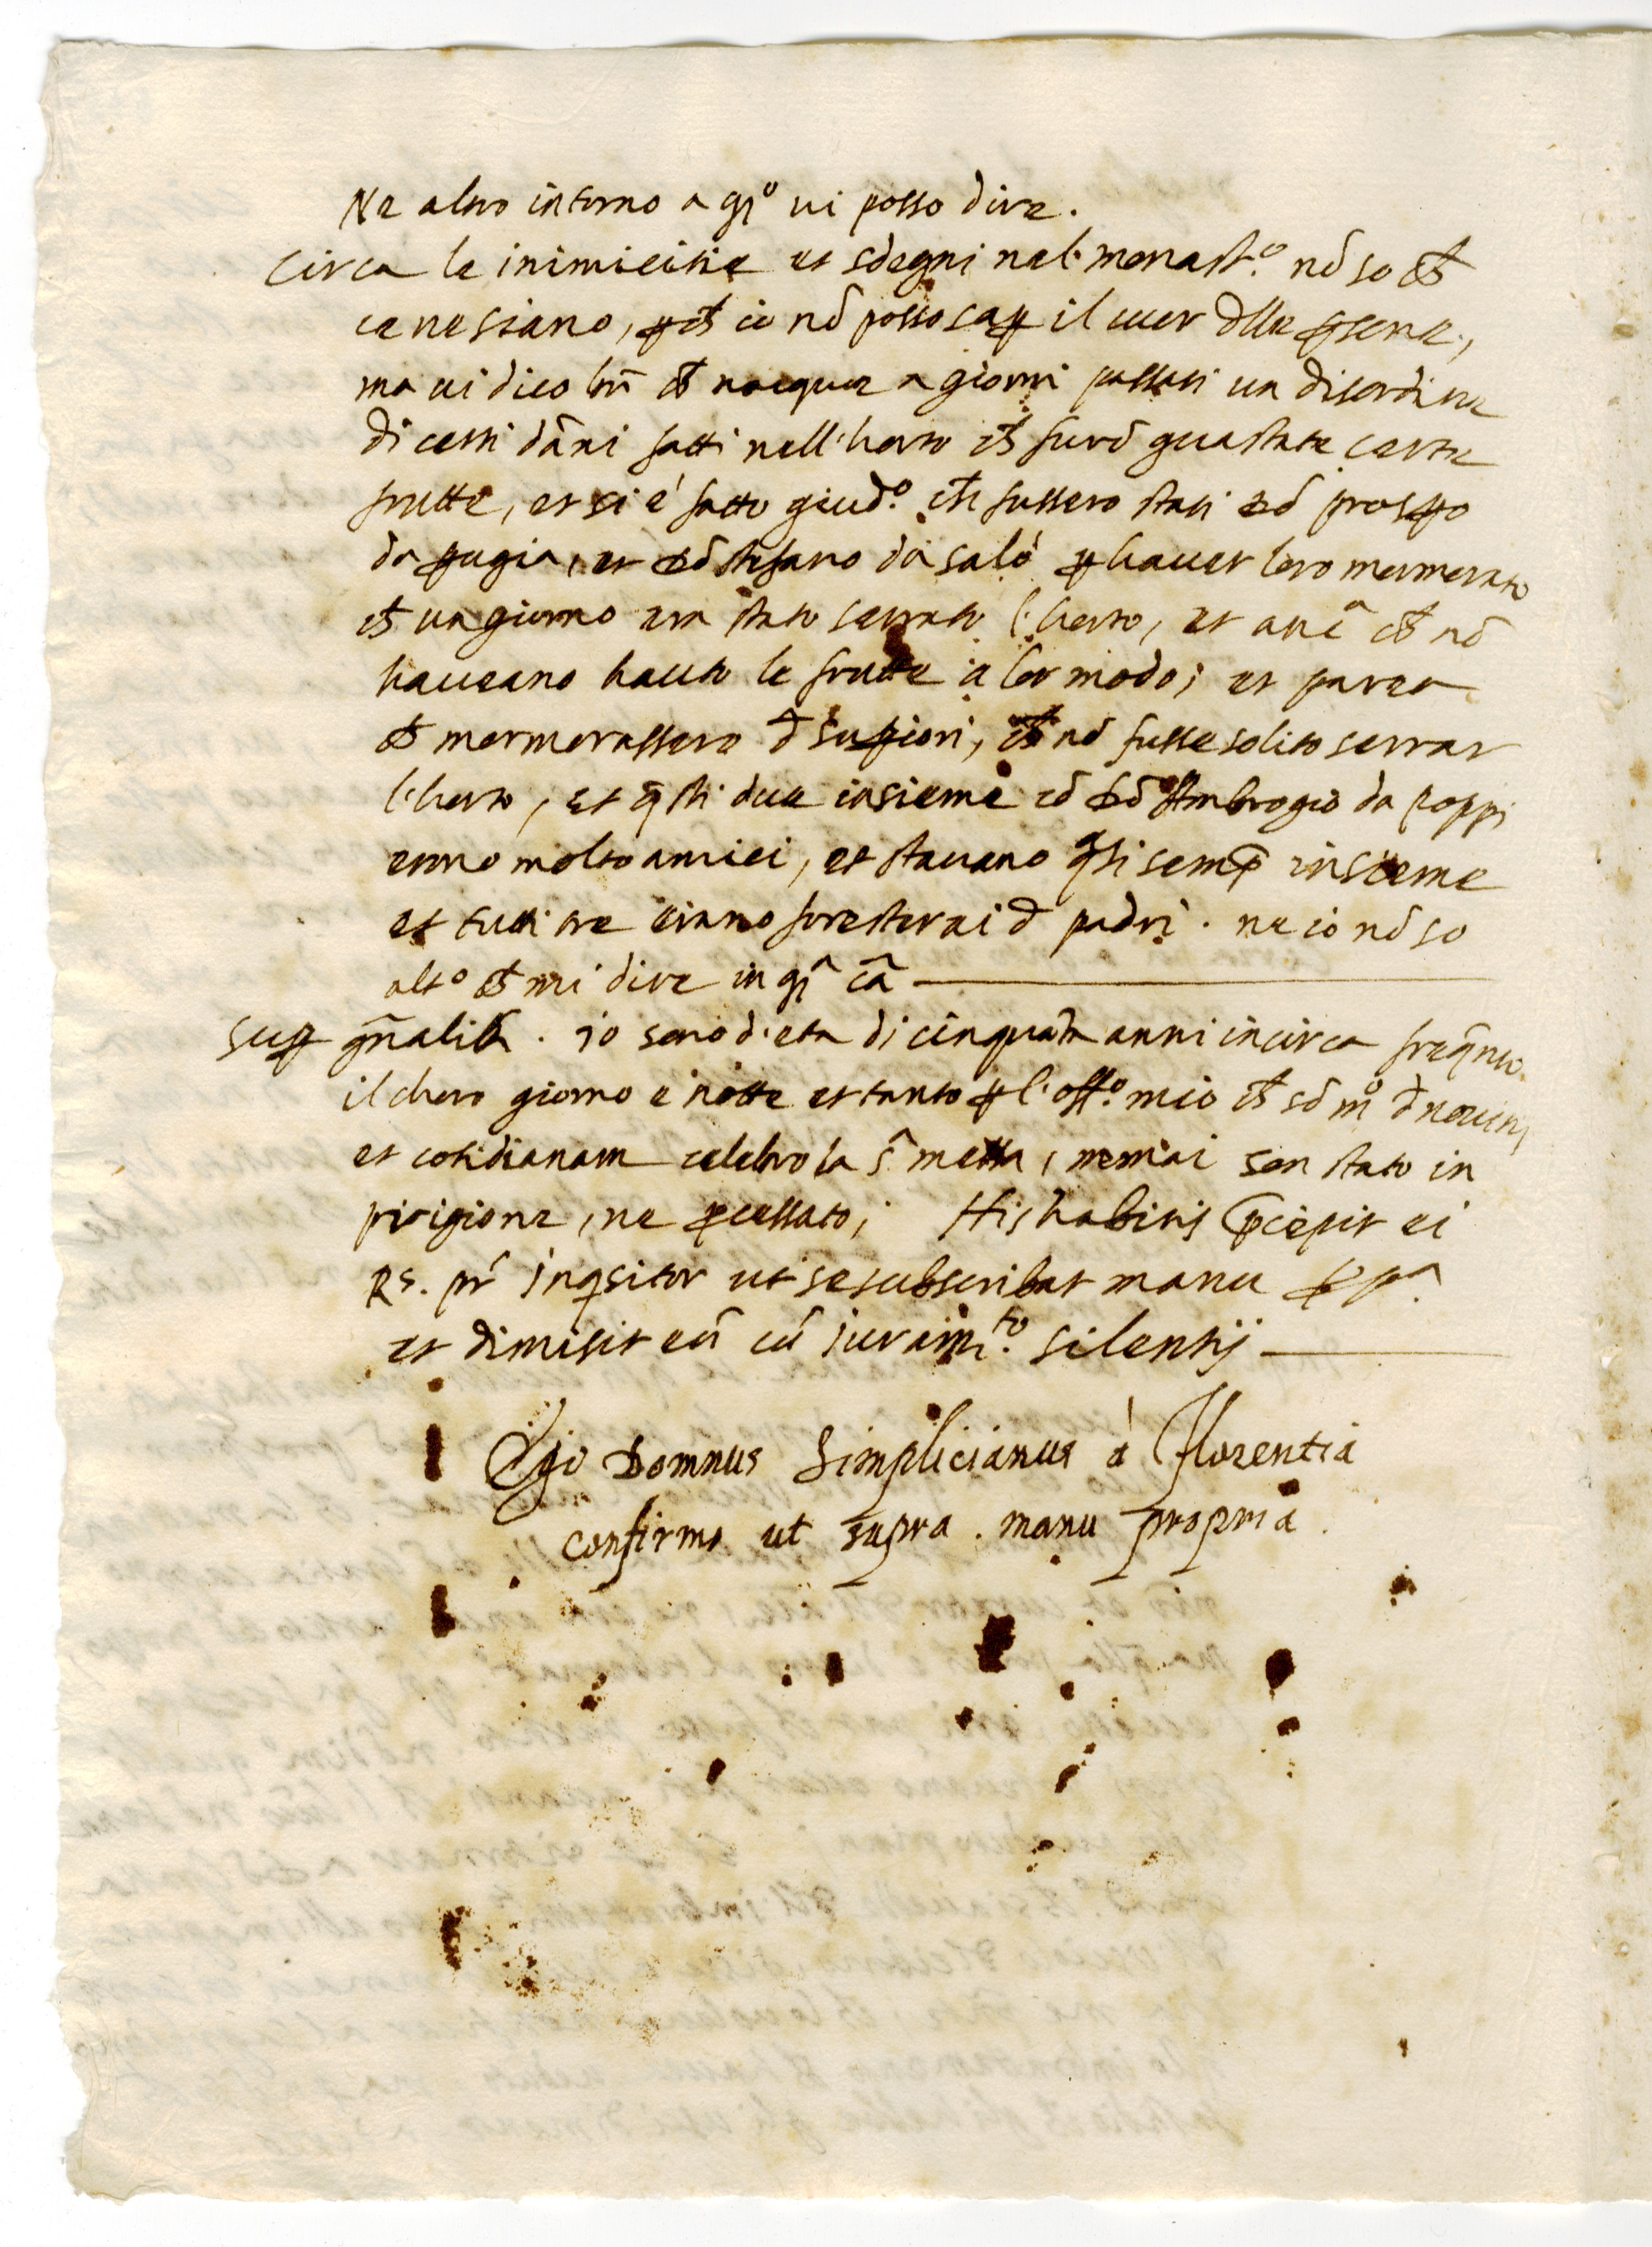 Ne altro intorno a q̃o ui posso dire.
Circa le inimicitie et sdegni nel monast.o nõ so ch̃
ce ne siano, ꝑch̃ io nõ posso saꝑ il cuor dlle ꝑsone,
ma ui dico bñ ch̃ nacque a giorni passati un disordine
di certi dãni fatti nell'horto ch̃ furõ guastate certe
frutte, et si è fatto giud.o ch̃ fussero stati Dõ Prosꝑo
da ꝑugia, et Dõ Stefano da salò ꝑ hauer loro mormorato
ch̃ un giorno era stato serrato l'horto, et anc̃ ch̃ nõ
haueano hauto le frutte a lor modo; et parea
ch̃ mormorassero d̃ suꝑiori, ch̃ nõ fusse solito serrar
l'horto, et q̃sti due insieme cõ Dõ Ambrogio da poppi
erano molto amici, et stauano q̃si semp̃ insieme
et tutti tre erano forestorai d̃ padri. ne io nõ so
alt.o ch̃ mi dire in q̃a cã
Suꝑ gñalib. Io sono d'eta di cinquãta anni incirca freq̃nto
il choro giorno e notte et tanto ꝑ l'off.o mio ch̃ sõ m.o d nouitij
et cotidianam celebro la s. messa, ne mai son stato in
prigione, ne ꝓcessato; His habitis p̃cepit ei
R.s pr̃ Inq̃sitor ut se subscribat manu ꝓp.a
et dimisit eũ cũ iuram.to silentij
Ego Domnus Simplicianus à Florentia
confirmo ut supra. manu propria.